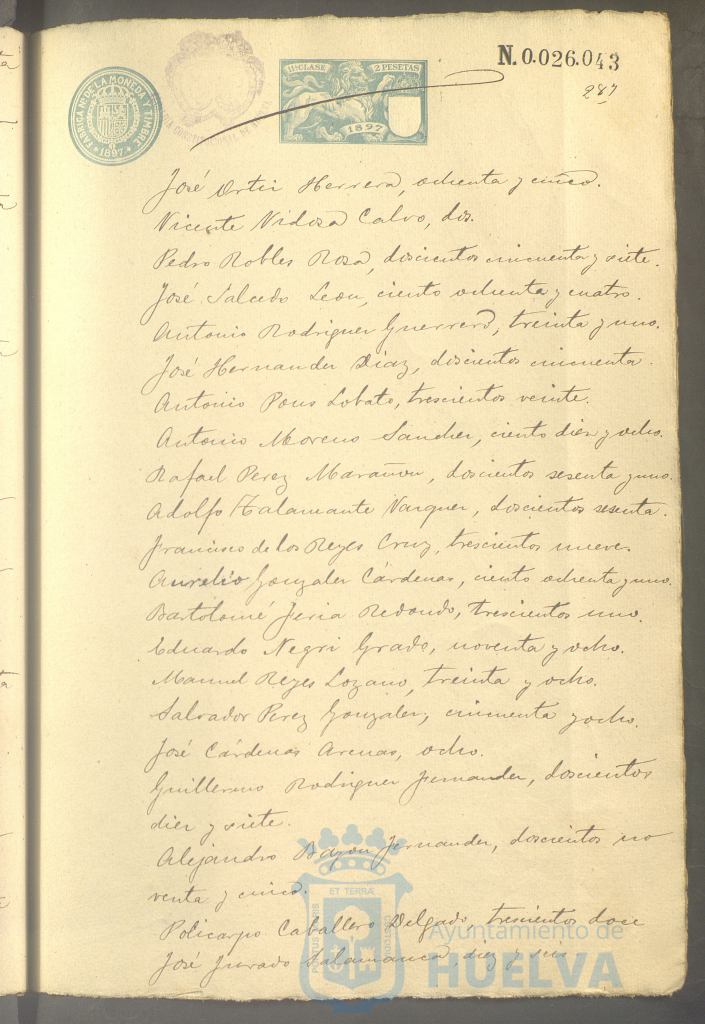 FABRICA Nal DE LA MONEDA Y TIMBRE
1897
11ª CLASE 2 PESETAS
1897
N.0.026.043
287
José Ortiz Herrera, ochenta y cinco.
Vicente Vidosa Calvo, dos.
Pedro Robles Rosa, doscientos cincuenta y siete.
José Salcedo Leon, ciento ochenta y cuatro.
Antonio Rodriguez Guerrero, treinta y uno.
José Hernandez Diaz, doscientos cincuenta.
Antonio Pons Lobato, trescientos veinte.
Antonio Moreno Sanchez, ciento diez y ocho.
Rafael Perez Marañon, doscientos sesenta y uno.
Adolfo Talamante Vazquez, doscientos sesenta.
Francisco de los Reyes Cruz, trescientos nueve.
Aurelio Gonzalez Cárdenas, ciento ochenta y uno.
Bartolomé Feria Redondo, trescientos uno.
Eduardo Negri Grado, noventa y ocho.
Manuel Reyes Lozano, treinta y ocho.
Salvador Perez Gonzalez, cincuenta y ocho.
José Cárdenas Arenas, ocho.
Guillermo Rodriguez Fernandez, doscientos
diez y siete.
Alejandro Bayon Fernandez, doscientos no
venta y cinco.
Policarpo Caballero Delgado, trescientos doce
José Jurado Salamanca, diez y seis
PORTUS MARIS ET TERRÆ CUSTODIA
Ayuntamiento de
HUELVA